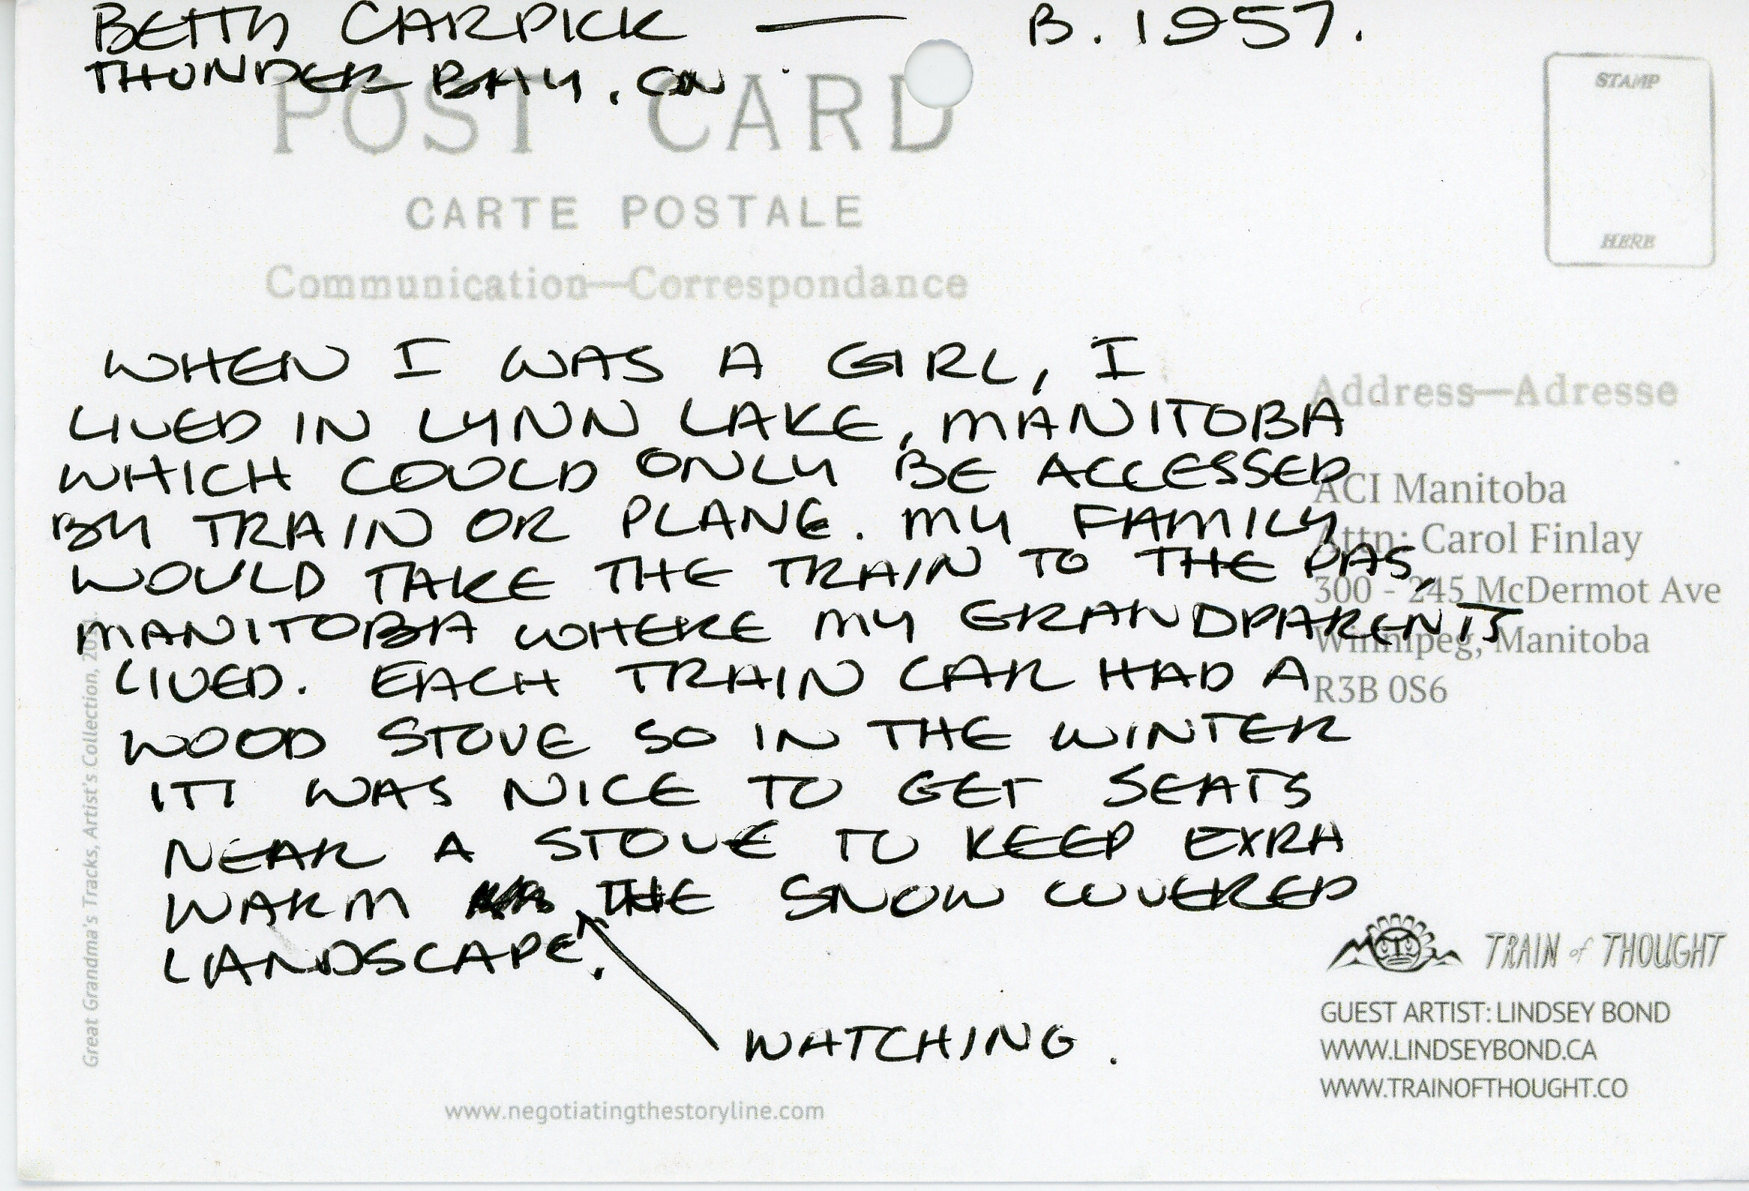 BETTY CARPICK — B. 1957.
THUNDER BAY, ON
POST CARD
CARTE POSTALE
Communication—Correspondance
STAMP
HERE
WHEN I WAS A GIRL, I
LIVED IN LYNN LAKE, MANITOBA
WHICH COULD ONLY BE ACCESSED
BY TRAIN OR PLANE. MY FAMILY
WOULD TAKE THE TRAIN TO THE PAS,
MANITOBA WHERE MY GRANDPARENTS
LIVED. EACH TRAIN CAR HAD A
WOOD STOVE SO IN THE WINTER
IT WAS NICE TO GET SEATS
NEAR A STOVE TO KEEP EXRA
WARM THE SNOW COVERED
LANDSCAPE.
WATCHING.
Address—Adresse
ACI Manitoba
Attn: Carol Finlay
300 - 245 McDermot Ave
Winnipeg, Manitoba
R3B 0S6
TRAIN of THOUGHT
GUEST ARTIST: LINDSEY BOND
WWW.LINDSEYBOND.CA
WWW.TRAINOFTHOUGHT.CO
Great Grandma's Tracks, Artist's Collection,
www.negotiatingthestoryline.com